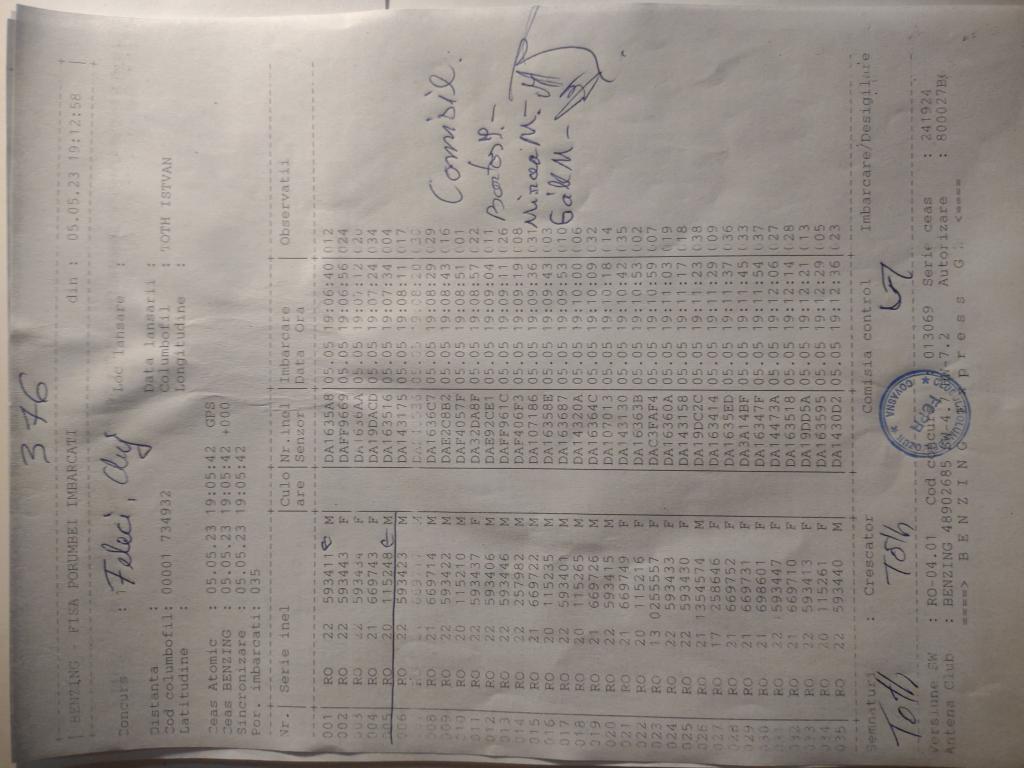 376
BENZING - FISA PORUMBEI IMBARCATI din : 05.05.23 19:12:58
Concurs : Feleci, Cluj Loc lansare :
Distanta : Data lansarii :
Cod columbofil: 00001 734932 Columbofil : TOTH ISTVAN
Latitudine : Longitudine :
Ceas Atomic : 05.05.23 19:05:42 GPS
Ceas BENZING : 05.05.23 19:05:42 +000
Sincronizare : 05.05.23 19:05:42
Por. imbarcati: 035
Nr. Serie inel Culo Nr.inel Imbarcare Observatii
are Senzor Data Ora
001 RO 22 593411 M DA1635A8 05.05 19:06:40 (12
002 RO 22 593443 F DAFF9669 05.05 19:06:56 (24
003 RO 22 593434 F 05.05 19:07:12
004 RO 21 669743 F DA19DACD 05.05 19:07:24 (34
005 RO 20 115248 M DA163516 05.05 19:07:34 (04
006 RO 22 593423 M DA143175 05.05 19:08:11 (17
008 RO 21 669714 M DA1636C7 05.05 19:08:29 (29
009 RO 22 593422 M DAE2CBB2 05.05 19:08:43 (16
010 RO 20 115210 M DAF4057F 05.05 19:08:51 (01
011 RO 22 593437 F DA32DA8F 05.05 19:08:57 (22
012 RO 22 593406 M DAE92CE1 05.05 19:09:04 (11
013 RO 22 593446 M DAFF961C 05.05 19:09:11 (26
014 RO 22 257982 M DAF406F3 05.05 19:09:19 (08
015 RO 21 669722 M DA107186 05.05 19:09:36 (31
016 RO 20 115235 M DA16358E 05.05 19:09:43 (03
017 RO 22 593401 M DA163687 05.05 19:09:53 (10
018 RO 20 115265 M DA14320A 05.05 19:10:00 (06
019 RO 21 669725 M DA16364C 05.05 19:10:09 (32
020 RO 22 593415 M DA107013 05.05 19:10:18 (14
021 RO 21 669749 F DA143130 05.05 19:10:42 (35
022 RO 20 115216 F DA16363B 05.05 19:10:53 (02
023 RO 13 0255557 F DAC3FAF4 05.05 19:10:59 (07
024 RO 22 593433 F DA16360A 05.05 19:11:03 (19
025 RO 22 593430 F DA143158 05.05 19:11:17 (18
026 RO 21 1354574 M DA19DC2C 05.05 19:11:23 (38
027 RO 17 258646 M DA163414 05.05 19:11:29 (09
028 RO 21 669752 F DA1635ED 05.05 19:11:37 (36
029 RO 21 669731 F DA2A14BF 05.05 19:11:45 (33
030 RO 21 698601 F DA16347F 05.05 19:11:54 (37
031 RO 22 593447 F DA14473A 05.05 19:12:06 (27
032 RO 21 669710 F DA163518 05.05 19:12:14 (28
033 RO 22 593413 F DA19DD5A 05.05 19:12:21 (13
034 RO 20 115261 F DA163595 05.05 19:12:29 (05
035 RO 22 593440 M DA1430D2 05.05 19:12:36 (23
Comisie.
Bartos P. -
Mircea M. -
Gáll M -
Semnaturi : Crescator Comisia control Imbarcare/Desigilare
Toth Toth
Versiune SW : RO-04.01 Cod calcul 013069 Serie ceas : 241924
Antena Club : BENZING 48902685 Autorizare : 800027B6
====> BENZING <====